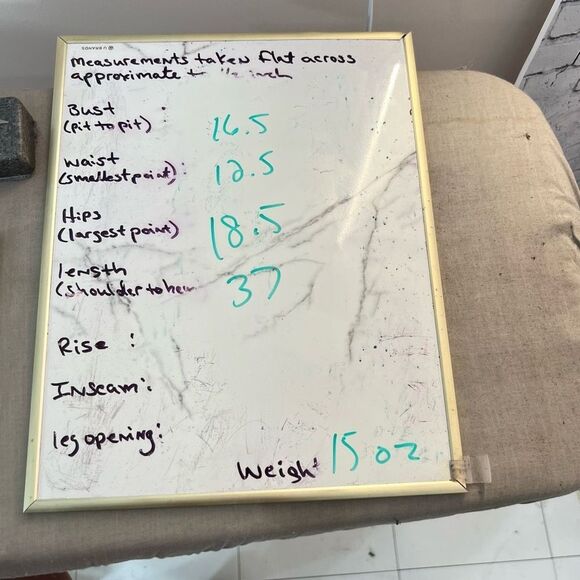 U BRANDS
Measurements taken flat across
approximate inch
Bust
(pit to pit) : 16.5
waist
(smallest point) : 12.5
Hips
(largest point) 18.5
length
(shoulder to hem 37
Rise :
Inseam :
leg opening :
Weight 15 oz